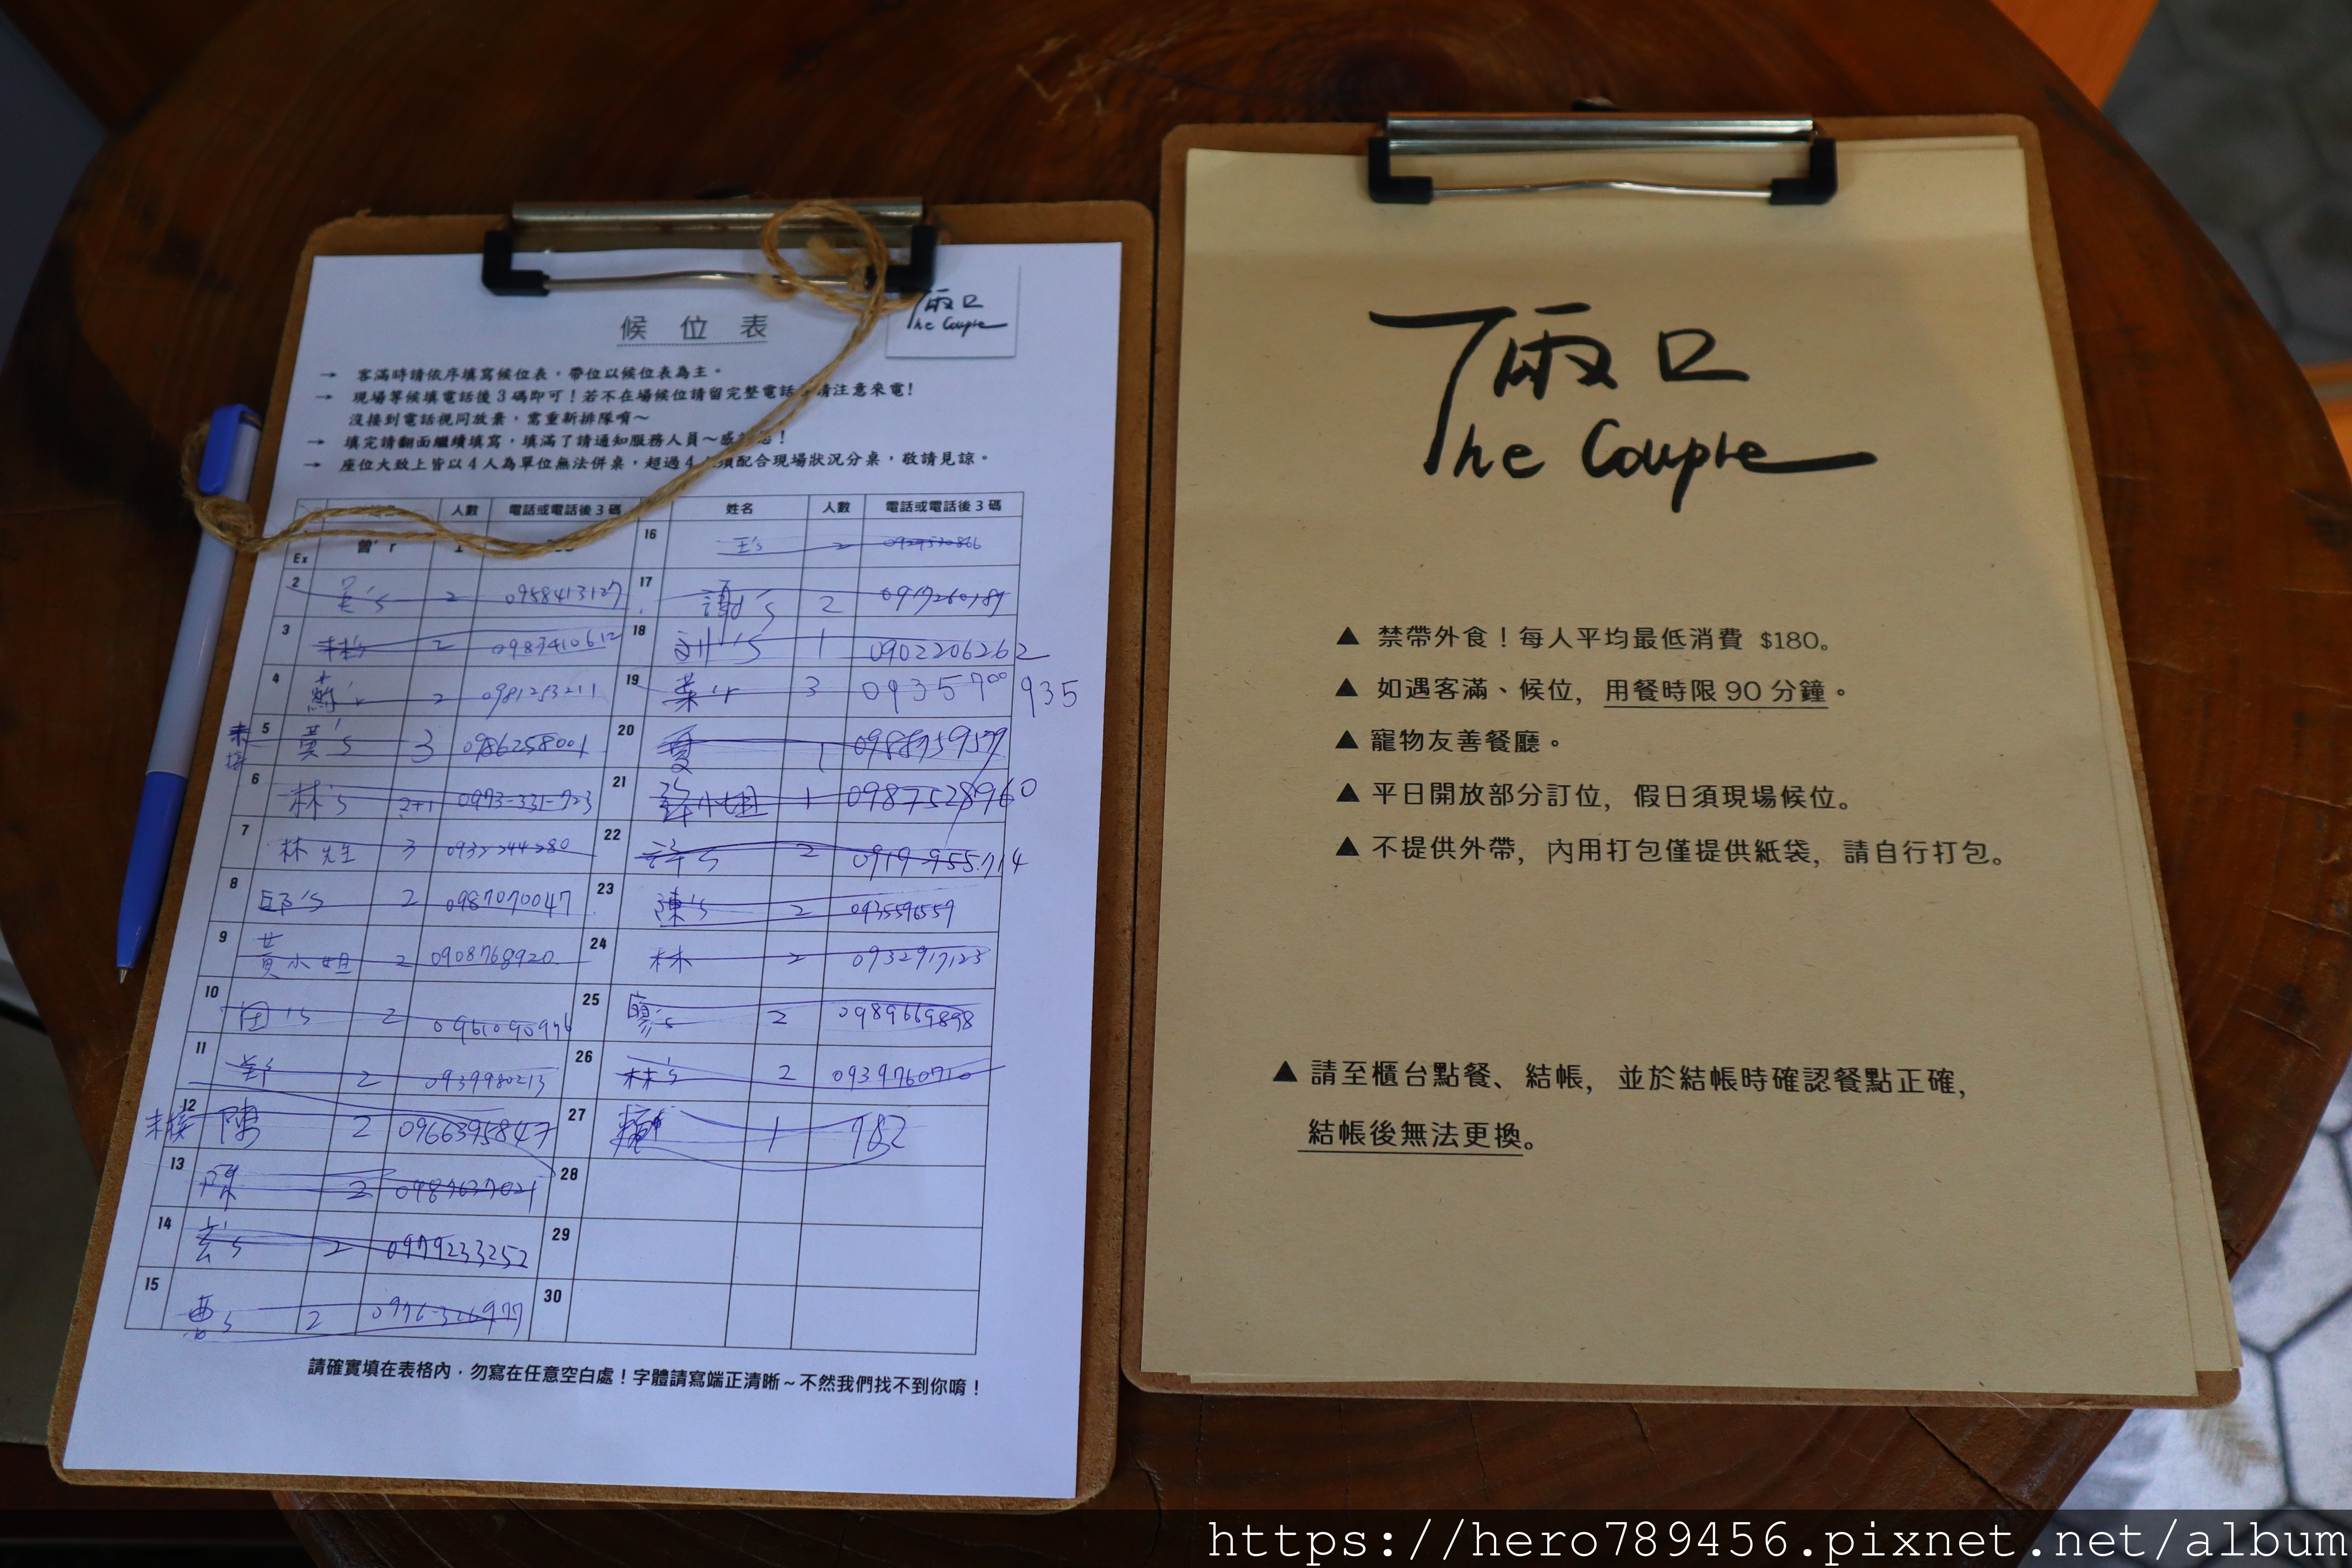 候位表
兩口
The Couple
→ 客滿時請依序填寫候位表，帶位以候位表為主。
→ 現場等候填電話後3碼即可！若不在場候位請留完整電話 請注意來電！
沒接到電話視同放棄，需重新排隊唷～
→ 填完請翻面繼續填寫，填滿了請通知服務人員～感 ！
→ 座位大致上皆以4人為單位無法併桌，超過4 須配合現場狀況分桌，敬請見諒。
人數 電話或電話後3碼
Ex 曾'r
2 吳's 2 0958413127
3 林's 2 0983410612
4 蘇'r 2 0981253211
5 黃's 3 0986258001
6 林's 2+1 0973-331-723
7 林先生 3 0932244280
8 邱's 2 0987070047
9 黃小姐 2 0908768920
10 田's 2 0961090976
11 2 0939980213
12 陳 2 0966395847
13 陳 2 0987637021
14 2 0979233252
15 曹's 2 0976-326977
姓名 人數 電話或電話後3碼
16 王's 2 0929530866
17 謝's 2 0917260189
18 劉's 1 0902206262
19 葉'r 3 0935700935
20 夏 1 0988759579
21 小姐 1 0987528960
22 許's 2 0919-955-714
23 陳's 2 0935596559
24 林 2 0932917123
25 廖's 2 0989669898
26 林's 2 0939760710
27 賴 1 782
28
29
30
請確實填在表格內，勿寫在任意空白處！字體請寫端正清晰～不然我們找不到你唷！
兩口
The Couple
▲ 禁帶外食！每人平均最低消費 $180。
▲ 如遇客滿、候位，用餐時限90分鐘。
▲ 寵物友善餐廳。
▲ 平日開放部分訂位，假日須現場候位。
▲ 不提供外帶，內用打包僅提供紙袋，請自行打包。
▲ 請至櫃台點餐、結帳，並於結帳時確認餐點正確，
結帳後無法更換。
https://hero789456.pixnet.net/album